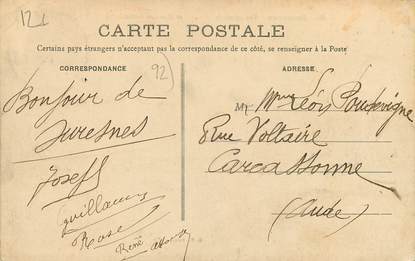 12
CARTE POSTALE
Certains pays étrangers n'acceptant pas la correspondance de ce côté, se renseigner à la Poste
CORRESPONDANCE
92
Bonjour de
Suresnes
Joseph
guillaume
Rose
René
ADRESSE
M Mme Léon Poudevigne
8 Rue Voltaire
Carcassonne
(Aude)